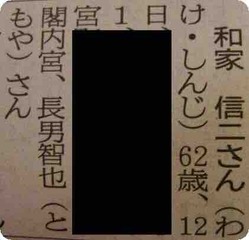 和家 信二さん(わ
け・しんじ)62歳、12
日
1
宮
閣内宮、長男智也(と
もや)さん